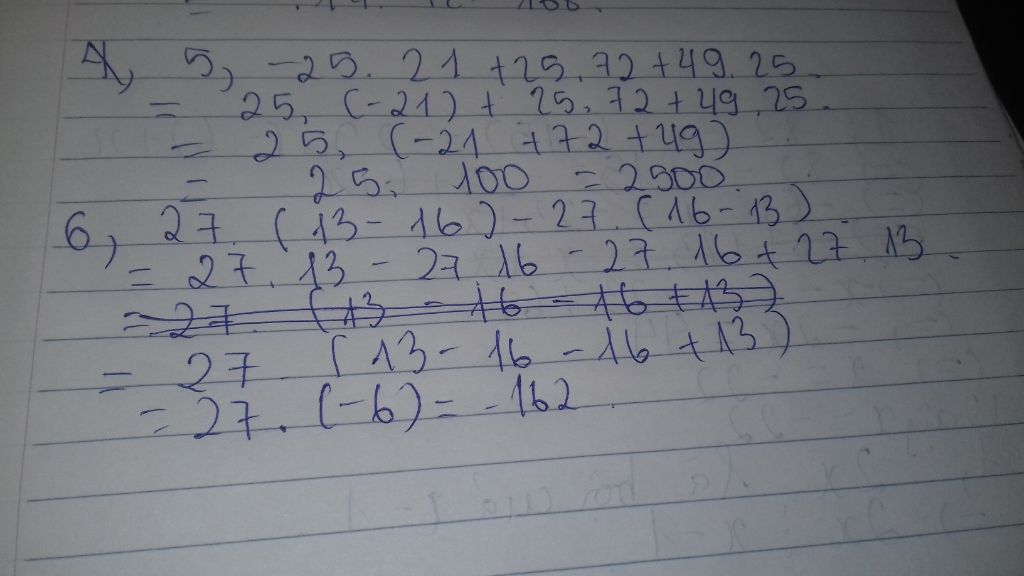 5, -25. 21 + 25. 72 + 49. 25.
= 25. (-21) + 25. 72 + 49. 25.
= 25. (-21 + 72 + 49)
= 25. 100 = 2500.
6, 27. (13 - 16) - 27. (16 - 13).
= 27. 13 - 27 16 - 27. 16 + 27. 13.
= 27. (13 - 16 - 16 + 13)
= 27. (13 - 16 - 16 + 13)
= 27. (-6) = -162.